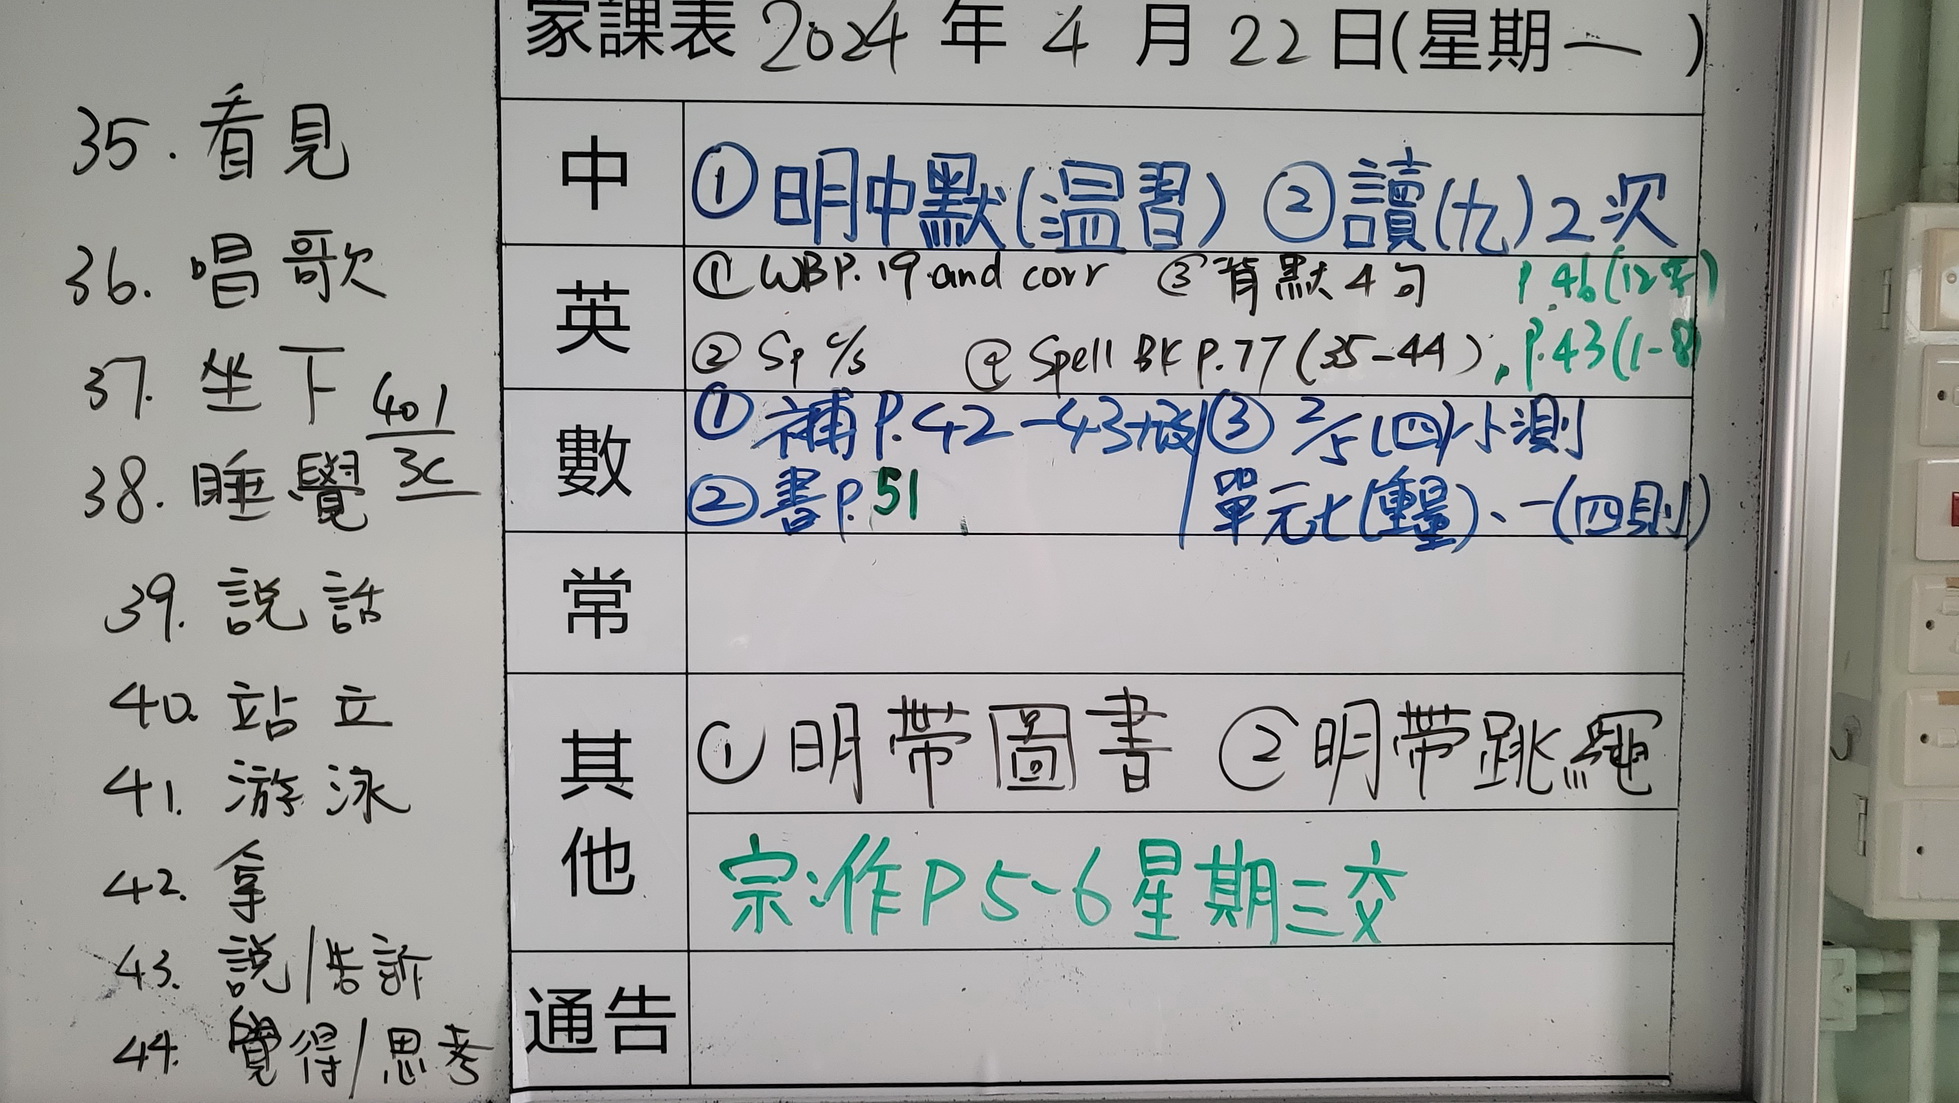 家課表 2024 年 4 月 22 日(星期一)
35. 看見
36. 唱歌
37. 坐下
401
3C
38. 睡覺
39. 説話
40. 站立
41. 游泳
42. 拿
43. 説/告訴
44. 覺得/思考
中
①明中默(温習) ②讀(九)2次
英
① WB P.19 and corr ③背默4句 P.46(12
② Sp c/s ④ Spell BK P.77 (35-44), P.43(1-8)
數
① 補P.42-43+改 ③ 2/5(四)小測
②書P.51 單元七(重量)、一(四則)
常
其他
①明帶圖書 ②明帶跳繩
宗:作P5-6星期三交
通告